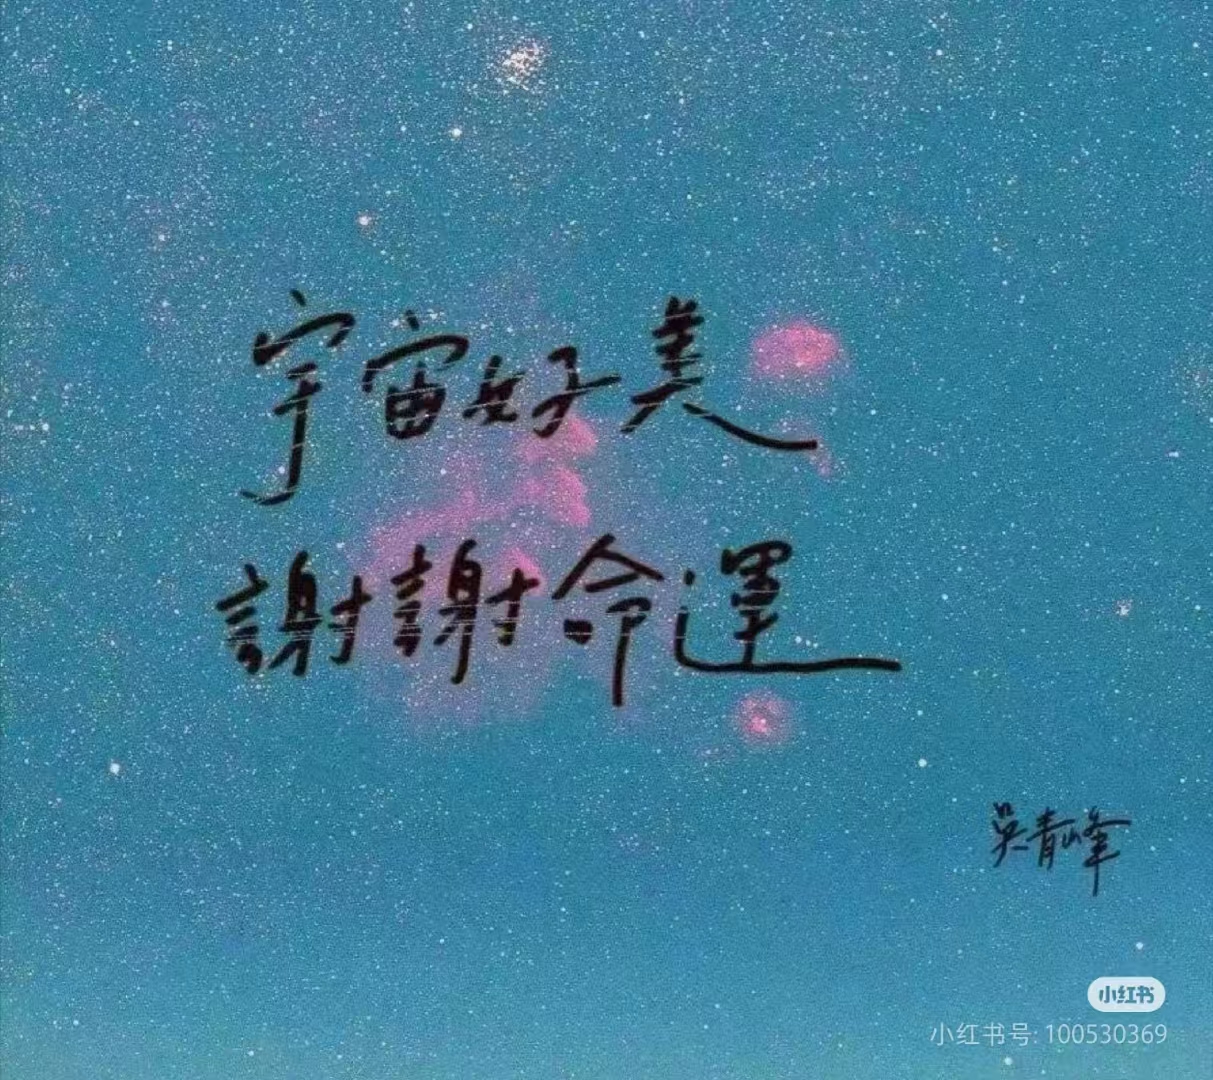 宇宙好美
謝謝命運
吳青峰
小红书
小红书号: 100530369